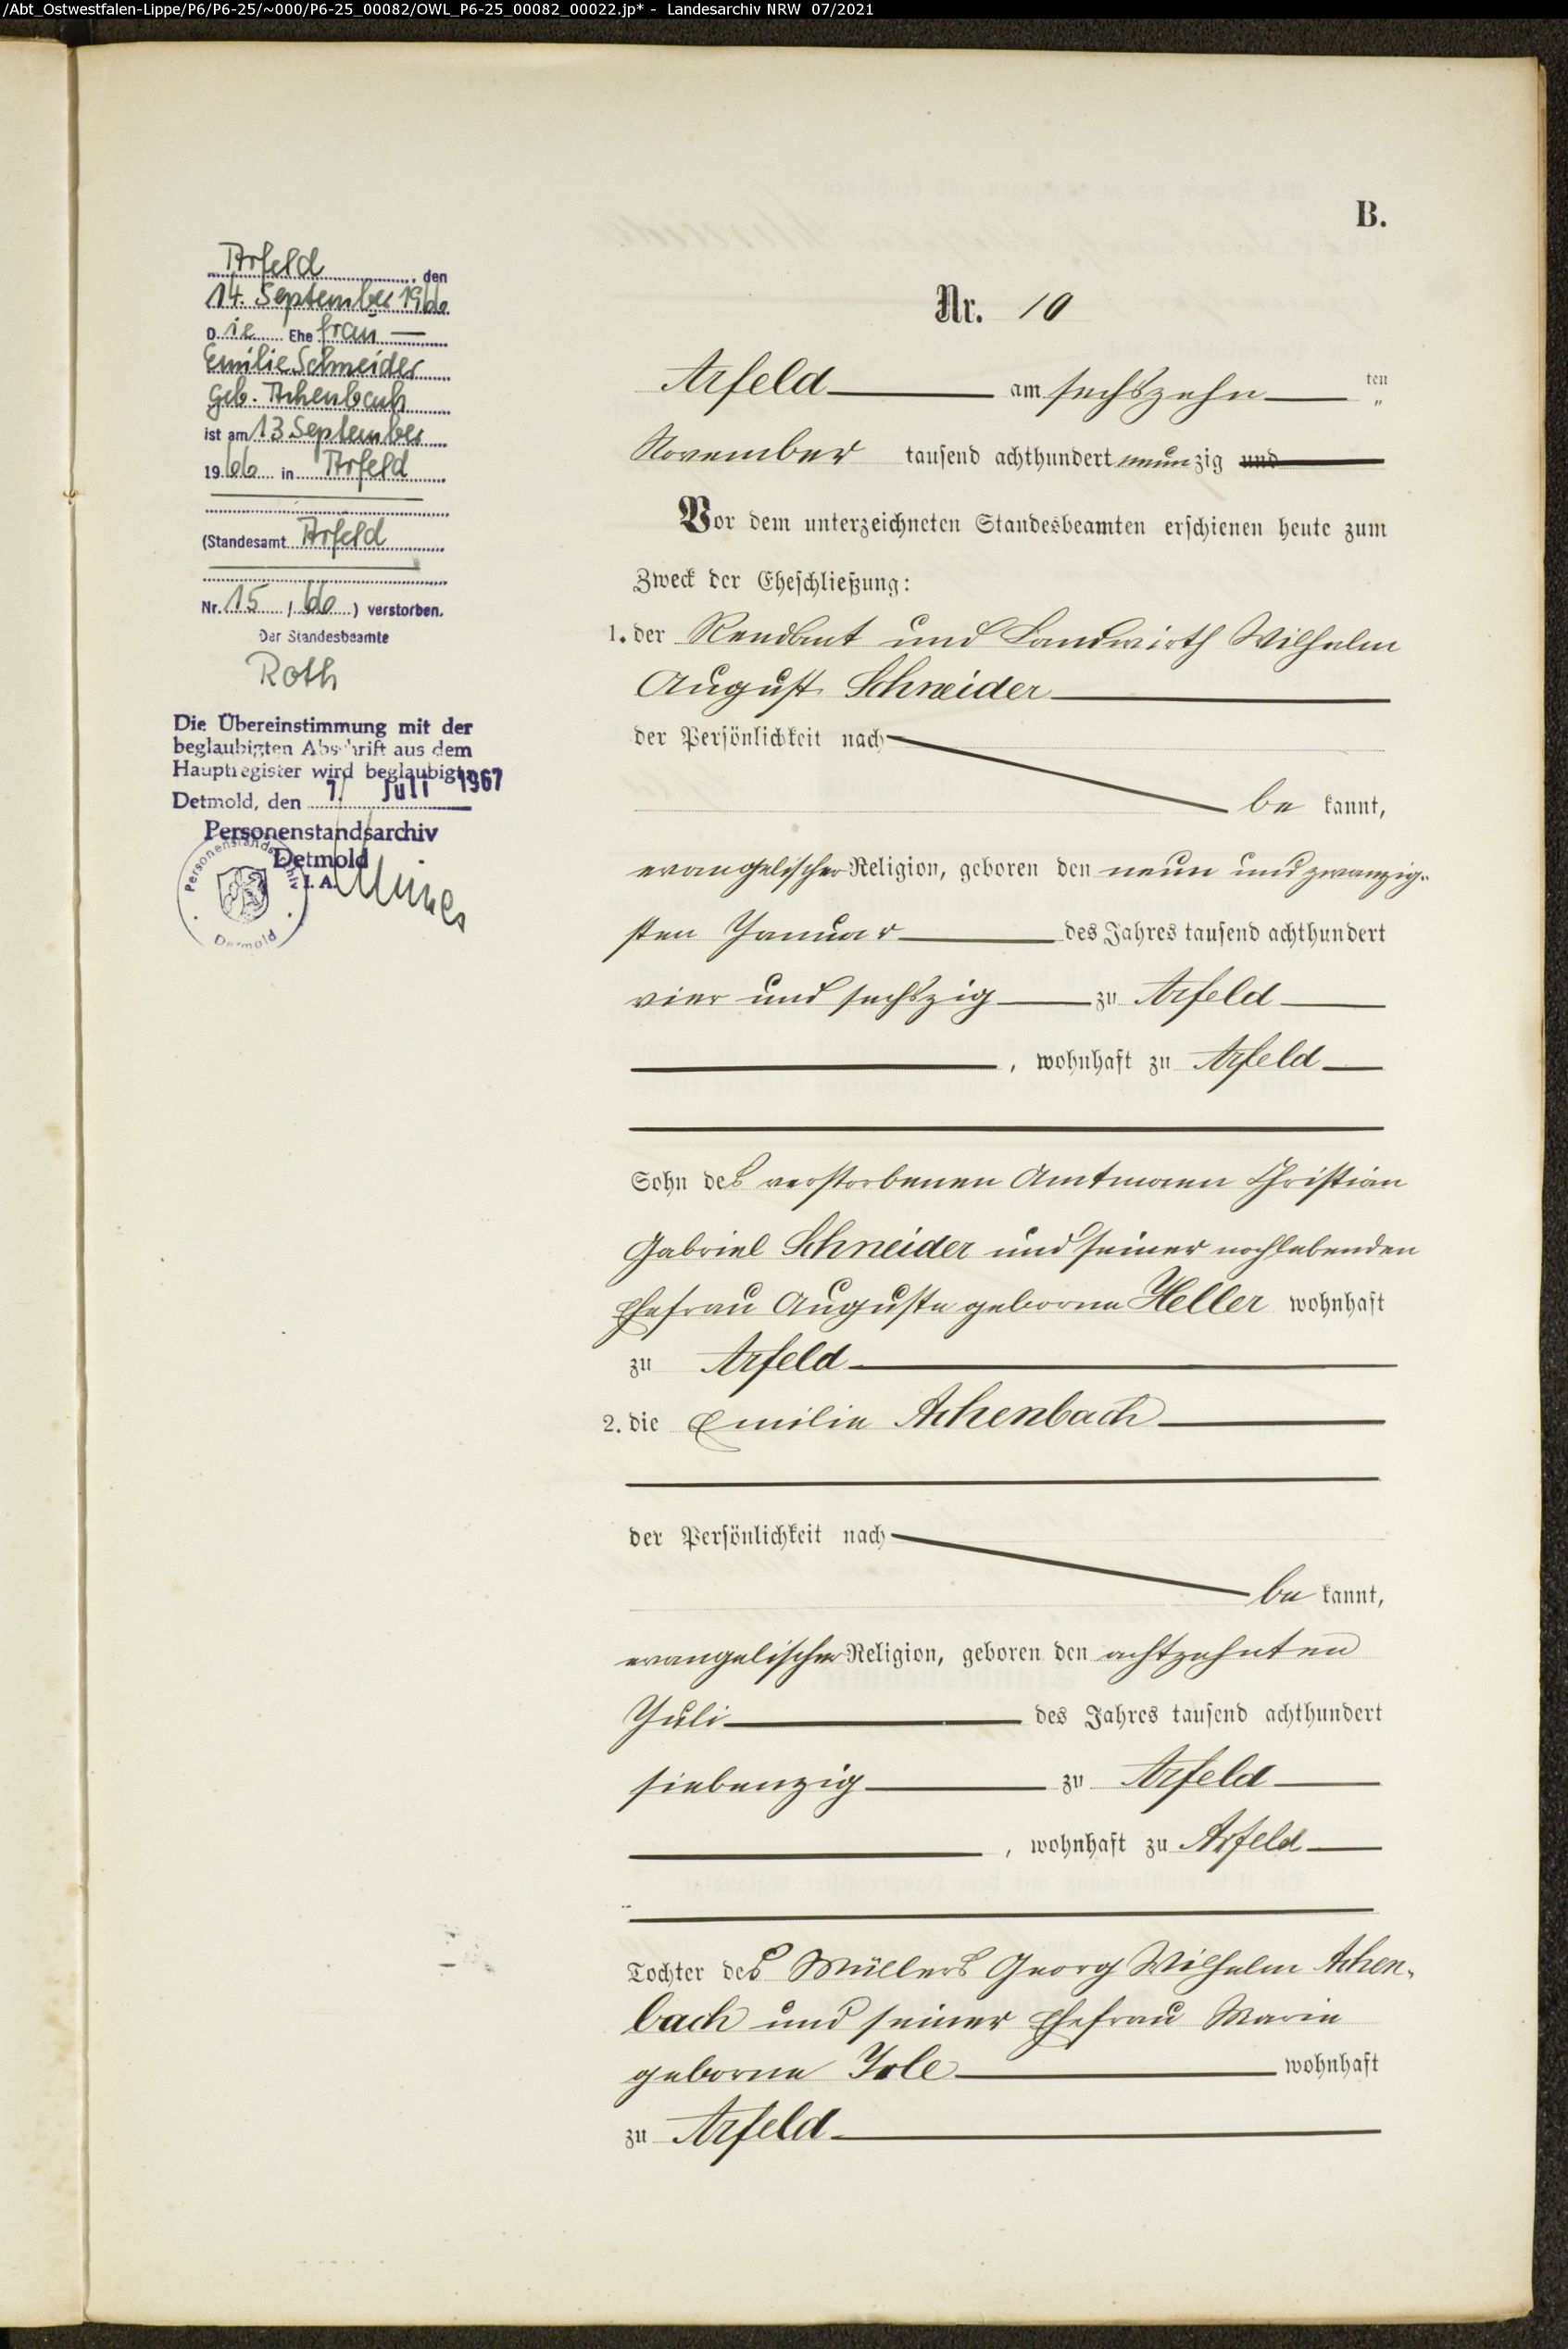 /Abt_Ostwestfalen-Lippe/P6/P6-25/~000/P6-25_00082/OWL_P6-25_00082_00022.jp* - Landesarchiv NRW 07/2021
B.
Arfeld, den
14. September 1966
Die Ehefrau
Emilie Schneider
geb. Achenbach
ist am 13 September
1966 in Arfeld
(Standesamt Arfeld
Nr. 15 / 66) verstorben.
Der Standesbeamte
Roth
Die Übereinstimmung mit der
beglaubigten Abschrift aus dem
Hauptregister wird beglaubigt
Detmold, den 7. Juli 1967
Personenstandsarchiv
Detmold
I. A.
Personenstandsarchiv
Detmold
Nr. 10
Arfeld am sechszehnten
November tausend achthundert neunzig und
Vor dem unterzeichneten Standesbeamten erschienen heute zum
Zweck der Eheschließung:
1. der Rendant und Landwirth Wilhelm
August Schneider
der Persönlichkeit nach
be kannt,
evangelischer Religion, geboren den neun und zwanzig-
sten Januar des Jahres tausend achthundert
vier und sechszig zu Arfeld
, wohnhaft zu Arfeld
Sohn des verstorbenen Amtmann Christian
Gabriel Schneider und seiner nochlebenden
Ehefrau Auguste geborne Heller wohnhaft
zu Arfeld
2. die Emilie Achenbach
der Persönlichkeit nach
be kannt,
evangelischer Religion, geboren den achtzehnten
Juli des Jahres tausend achthundert
siebenzig zu Arfeld
, wohnhaft zu Arfeld
Tochter des Müllers Georg Wilhelm Achen-
bach und seiner Ehefrau Marie
geborne Irle wohnhaft
zu Arfeld